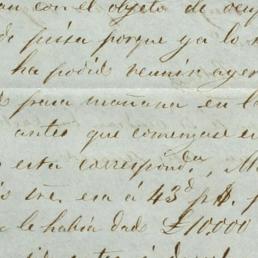 an con el objeto de ocu
pieza porque ya lo
ha podido reunir ayer
para mañana en l
antes que comenzase
esta correspond.da
tre. era á 43d p$. p
le había dado £10.000